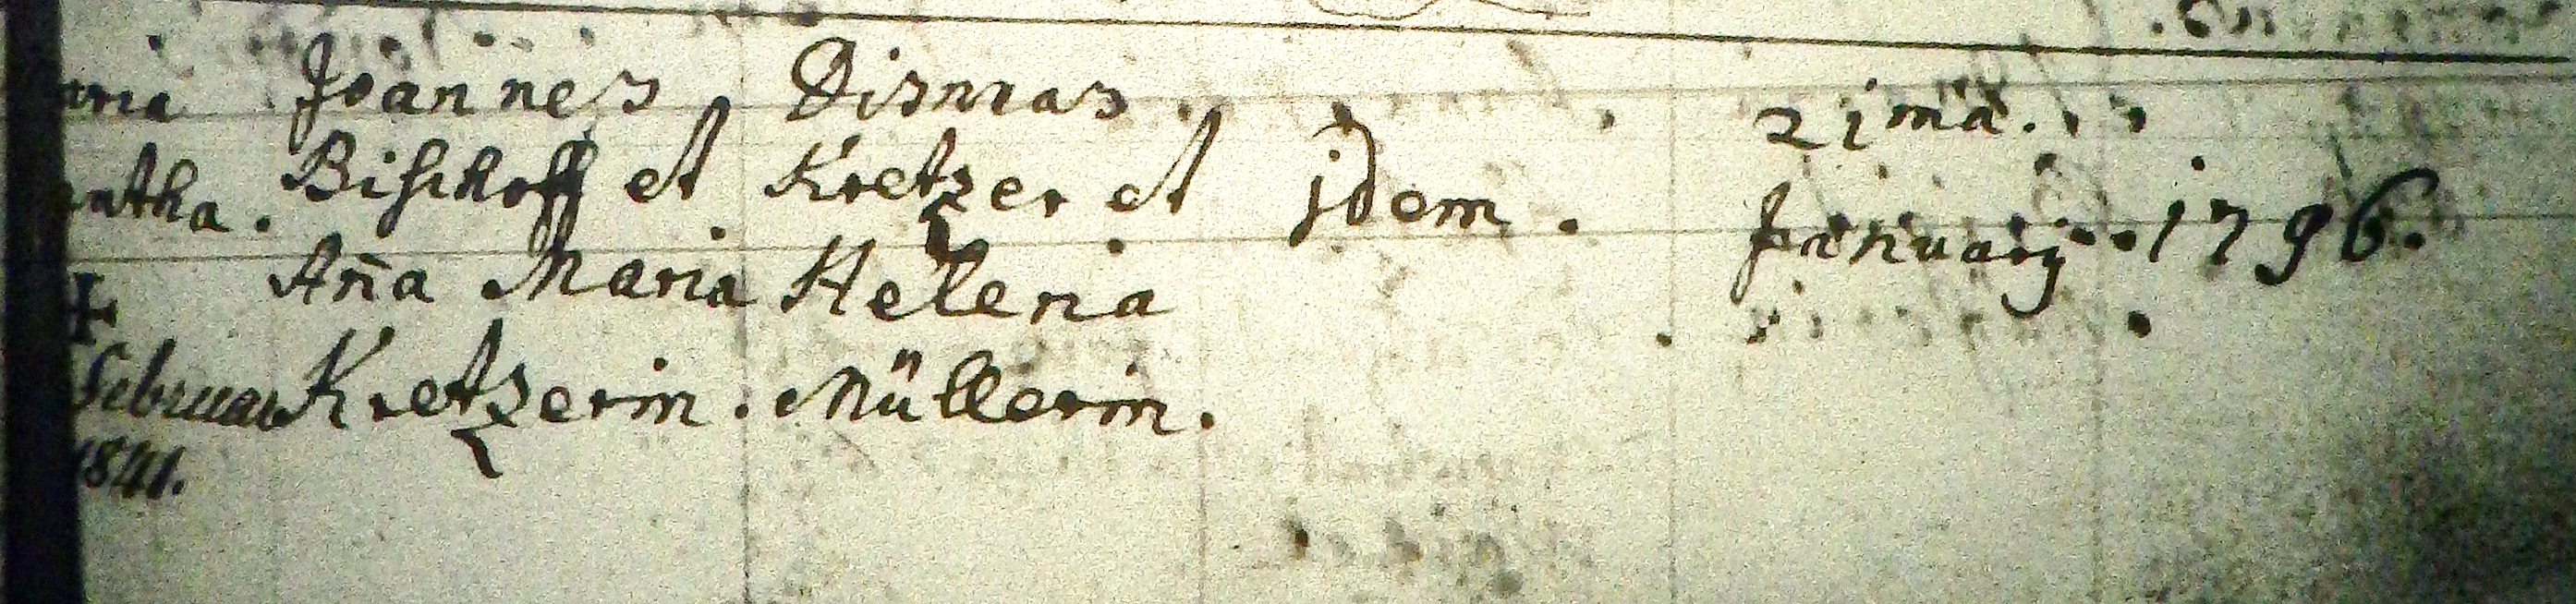 aria Joannes Dismas . 21ma.
antha. Bischoff et Kretzer et jdem. Januarÿ. 1796.
✝ Aña Maria Helena
februar Kretzerin. Müllerin.
1841.